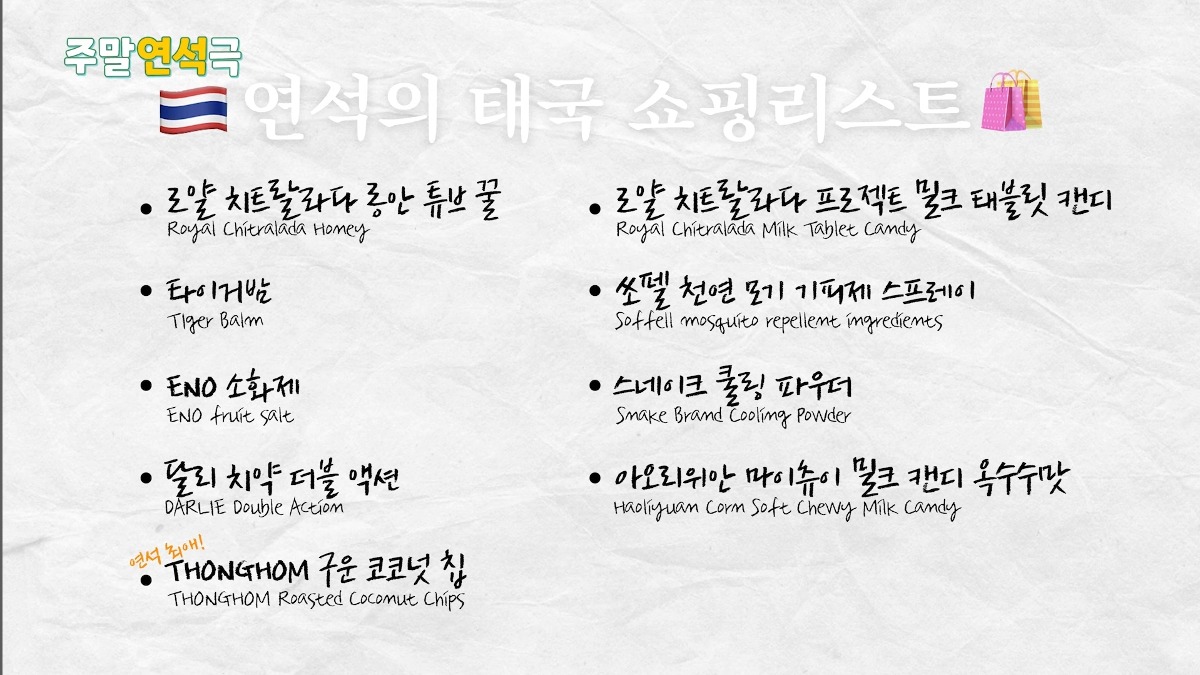 주말연석극
연석의 태국 쇼핑리스트
로얄 치트랄라다 롱안 튜브 꿀
Royal Chitralada Honey
타이거밤
TIger Balm
ENO 소화제
ENO fruit salt
달리 치약 더블 액션
DARLIE Double Action
연석 최애!
THONGHOM 구운 코코넛 칩
THONGHOM Roasted Coconut Chips
로얄 치트랄라다 프로젝트 밀크 태블릿 캔디
Royal Chitralada Milk Tablet Candy
쏘펠 천연 모기 기피제 스프레이
Soffell mosquito repellent ingredients
스네이크 쿨링 파우더
Snake Brand Cooling Powder
아오리위안 마이츄이 밀크 캔디 옥수수맛
Haoliyuan Corn Soft Chewy Milk Candy